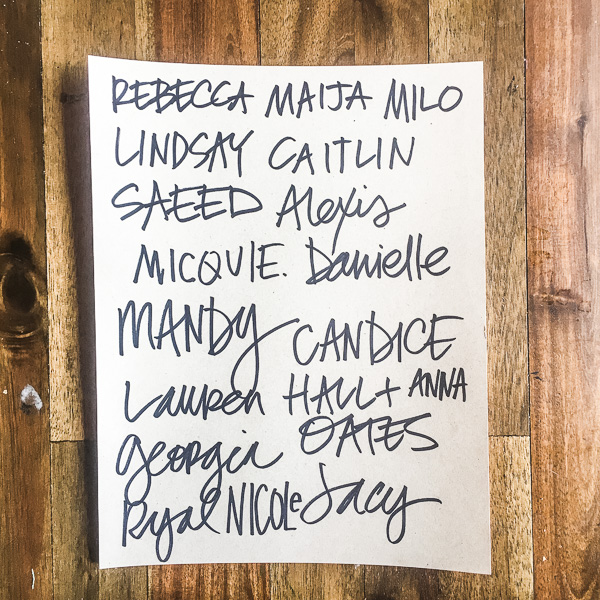 REBECCA MAIJA MILO
LINDSAY CAITLIN
SAEED Alexis
MICQUIE. Danielle
MANDY CANDICE
Lauren HALL+ ANNA
georgia OATES
Ryal NICOLe Jacy